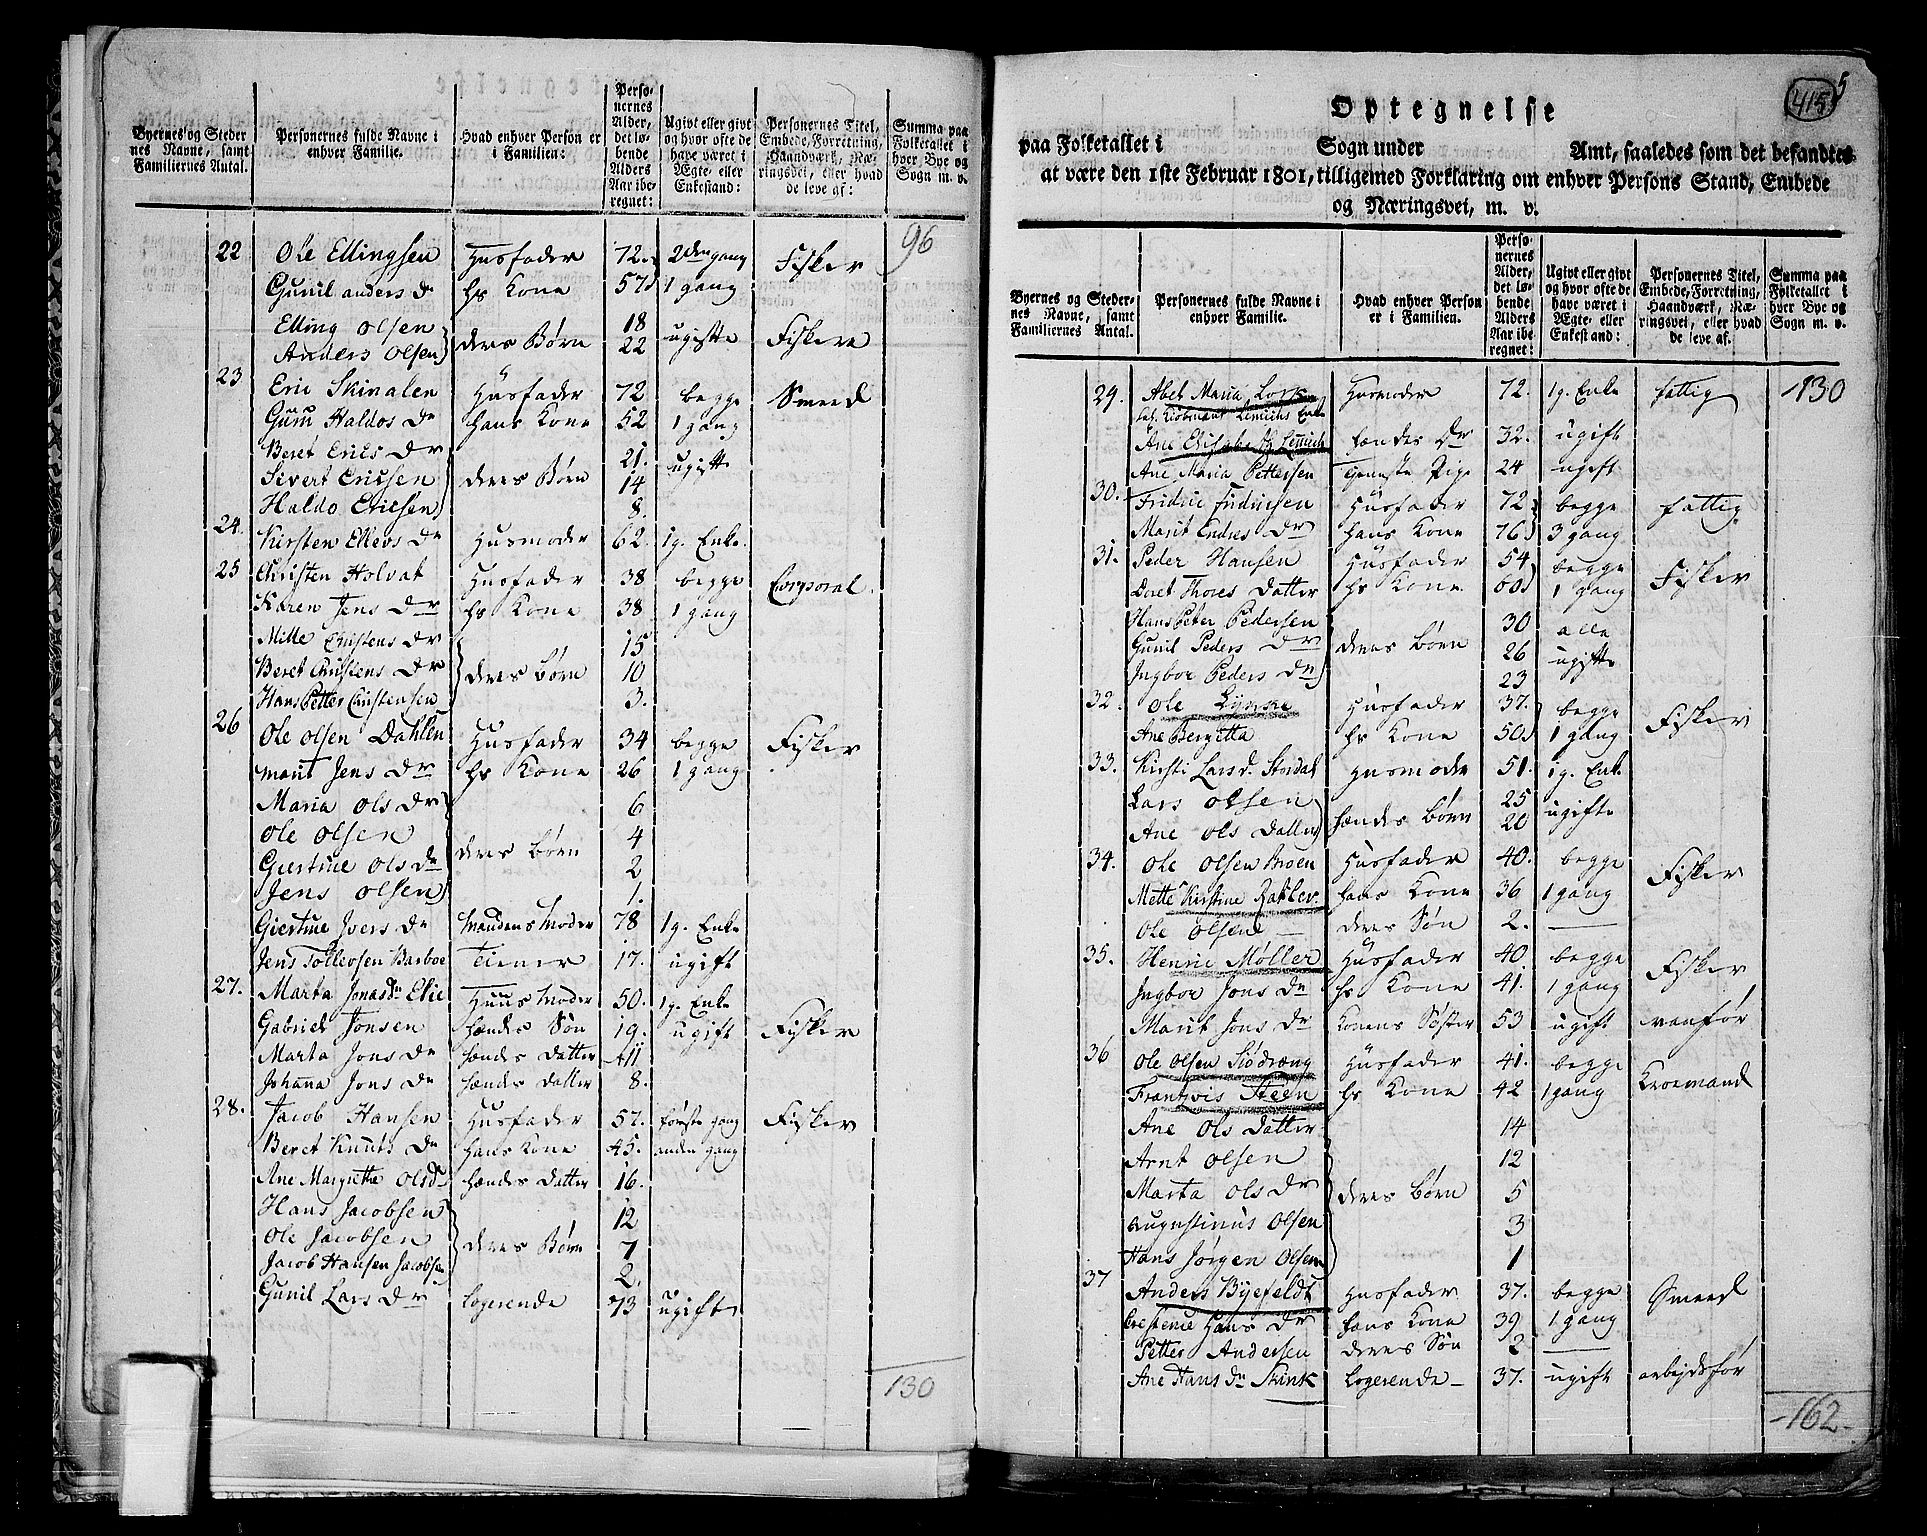 Byernes og Steder
nes Navne, samt
Familiernes Antal.
Personernes fulde Navne i
enhver Familie.
Hvad enhver Person er
i Familien:
Perso-
nernes
Alder,
det lø-
bende
Alders
Aar ibe-
regnet:
Ugivt eller givt
og hvor ofte de
have været i
Ægte- eller
Enkestand:
Personernes Titel,
Embede, Forretning,
Haandværk, Næ-
ringsvei, eller hvad
de leve af:
Summa paa
Folketallet i
hver Bye og
Sogn m. v.
96
22 Ole Ellingsen Husfader 72. 2den gang Fisker
Gunil anders dr hs Kone 57 1 gang
Elling Olsen 18
Anders Olsen deres Børn 22 ugifte Fiskere
23 Eric Skinalen Husfader 72 begge Smeed
Guru Haldos dr hans Kone 52 1 gang
Beret Erics dr 21. ugifte
Sivert Ericsen deres Børn 14
Haldo Ericsen 8.
24. Kirsten Ellevs dr Husmoder 62. 1g. Enke.
25 Christen Holvat Husfader 38 begge Corporal.
Karen Jens dr hs Kone 38 1 gang
Mille Christens dr 15
Beret Christens dr deres børn 10
Hans Petter Christensen 3.
26 Ole Olsen Dahlen Husfader 34 begge Fisker
marit Jens dr hs Kone 26 1 gang
Maria Ols dr 6
Ole Olsen 4
Giertrue Ols dr deres børn 2
Jens Olsen 1.
Giertrue Ivers dr Mandens Moder 78 1g. Enke
Jens Tollevsen Barboe Tiener 17. ugift
27. Marta Jonasdr Elie Huus Moder 50. 1g. Enke
Gabriel Jonsen hendes Søn 19. ugift Fisker
Marta Jons dr hendes datter 11
Johanna Jons dr hendes datter 8.
28. Jacob Hansen Husfader 57. første gang Fisker
Beret Knuts dr hans Kone 45. anden gang
Ane Margrethe Olsdr hendes datter 16.
Hans Jacobsen 12
Ole Jacobsen deres Børn 7
Jacob Hansen Jacobsen 2.
Gunil Lars dr logerende 73 ugift
130
415
5
Optegnelse
paa Folketallet i Sogn under Amt, saaledes som det befandtes
at være den 1ste Februar 1801, tilligemed Forklaring om enhver Persons Stand, Embede
og Næringsvei, m. v.
Byernes og Steder-
nes Navne, samt
Familiernes Antal.
Personernes fulde Navne i
enhver Familie.
Hvad enhver Person
er i Familien.
Perso-
nernes
Alder,
det lø-
bende
Alders
Aar ibe-
regnet:
Ugivt eller givt
og hvor ofte de
have været i
Ægte- eller
Enkestand:
Personernes Titel,
Embede, Forretning,
Haandværk, Næ-
ringsvei, eller hvad
de leve af.
Summa paa
Folketallet i
hver Bye og
Sogn m. v.
29. Abel Maria Lork Husmoder 72. 1g. Enke fattig 130
Lemichs Enke
Ane Elisabeth Lemich hendes Dr 32. ugift
Ane Maria Pettersen tjeneste Pige 24 ugift
30. Fridric Fridricsen Husfader 72 begge fattig
Marit Endres dr hans Kone 76 3 gang
31. Peder Hansen Husfader 54 begge Fisker
Doret Thores Datter hs Kone 60 1 gang
Hans Peter Pedersen 30 alle
Gunil Peders dr deres børn 26 ugifte
Ingbor Peders dr 23
32. Ole Husfader 37. begge Fisker
Ane Bergitta hs Kone 50. 1 gang
33. Kirsti Larsd. Stordal Husmoder 51. 1g. Enke
Lars Olsen 25
Ane Ols datter hendes børn 20 ugifte
34. Ole Olsen Moen Husfader 40. begge Fisker
Mette Kirstine hans Kone 36 1 gang
Ole Olsen deres Søn 2.
35. Henric Møller Husfader 40 begge Fisker
Ingbor Jons dr hs Kone 41. 1 gang
Marit Jons dr Konens Søster 53 ugift vanfør
36 Ole Olsen Husfader 41. begge Kroemand
Steen hs Kone 42 1 gang
Ane Ols datter 14
Arnt Olsen 12
Marta Ols dr deres børn 5
Augustinus Olsen 3
Hans Jørgen Olsen 1
37 Anders Byefeldt Husfader 37. begge Smeed
Hans dr hans Kone 39 1 gang
Petter Andersen deres Søn 2
Ane Hans dr Skink logerende 37. ugift arbejdsfør
162